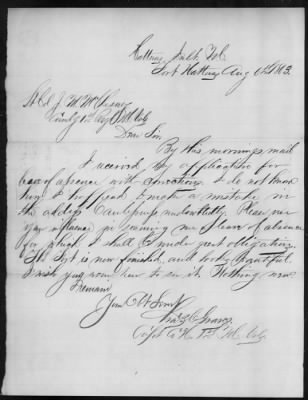 Hatteras Inlet N.C.
Fort Hatteras Aug 6th 1863.
Lt Col J. M. McChesney
Comdg 1st Regt N.C. Vols
Dear Sir
By this mornings mail
I received my application for
leave of absence with corrections. I do not know
how I happened to make a mistake in
the address Carelessness undoubtedly. Please use
your influence in securing me a leave of absence
for which I shall be under great obligations.
The Fort is now finished, and looks beautiful.
I wish you were here to see it. Nothing new
I remain
Your Obt Servt
Capt Co H 1st N.C. Vols.